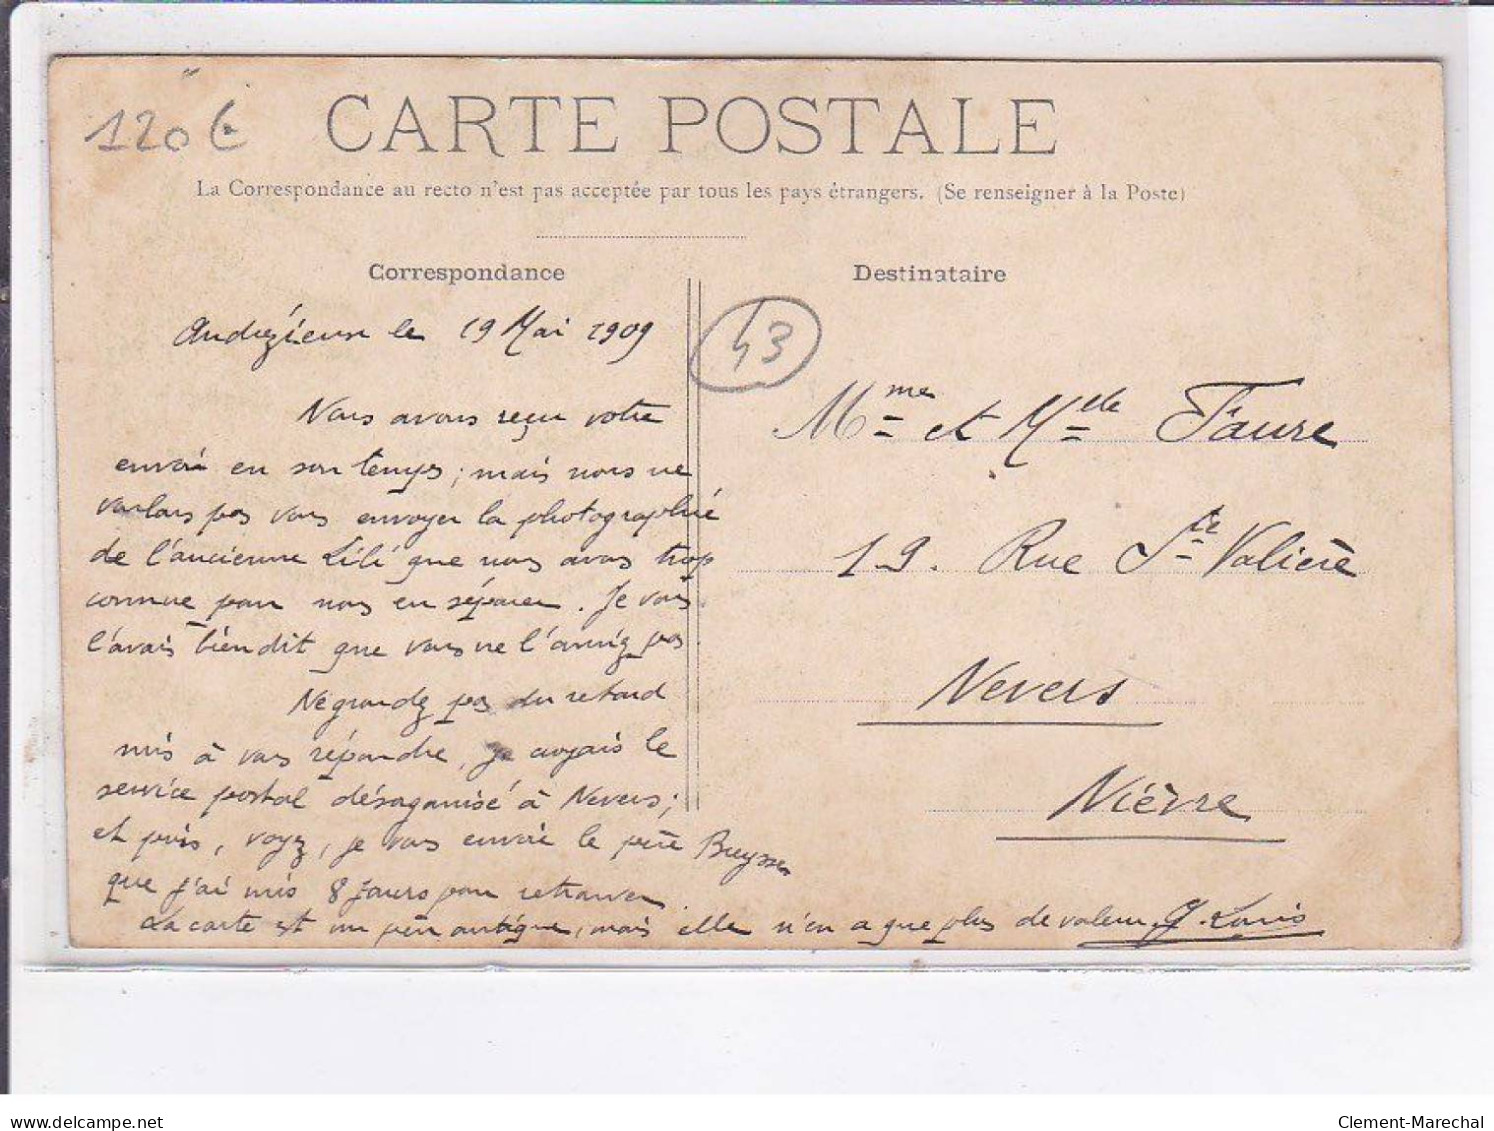 120 €
CARTE POSTALE
La Correspondance au recto n'est pas acceptée par tous les pays étrangers. (Se renseigner à la Poste)
Correspondance
Destinataire
43
Andrézieux le 19 Mai 1909
Nous avons reçu votre
envoi en son temps; mais nous ne
voulons pas vous envoyer la photographie
de l'ancienne Lili que nous avons trop
connue pour nous en séparer. Je vous
l'avais bien dit que vous ne l'auriez pas.
Ne grondez pas du retard
mis à vous répondre, je croyais le
service postal désorganisé à Nevers;
et puis, voyez, je vous envoie le père Breysse
que j'ai mis 8 jours pour retrouver.
La carte est un peu antique, mais elle n'en a que plus de valeur. Louis
Mme et Mlle Faure
19. Rue Ste Valière
Nevers
Nièvre
delcampe.net
Clement-Marechal